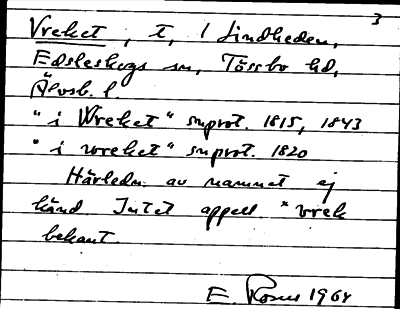 3
Vreket, t, 1 Lindheden,
Edsleskogs sn, Tössbo hd,
Älvsb. l.
"i Wreket" snprot. 1815, 1843
"i vreket" snprot. 1820
Härledn. av namnet ej
känd. Intet appell *vrek
bekant.
E. 1964